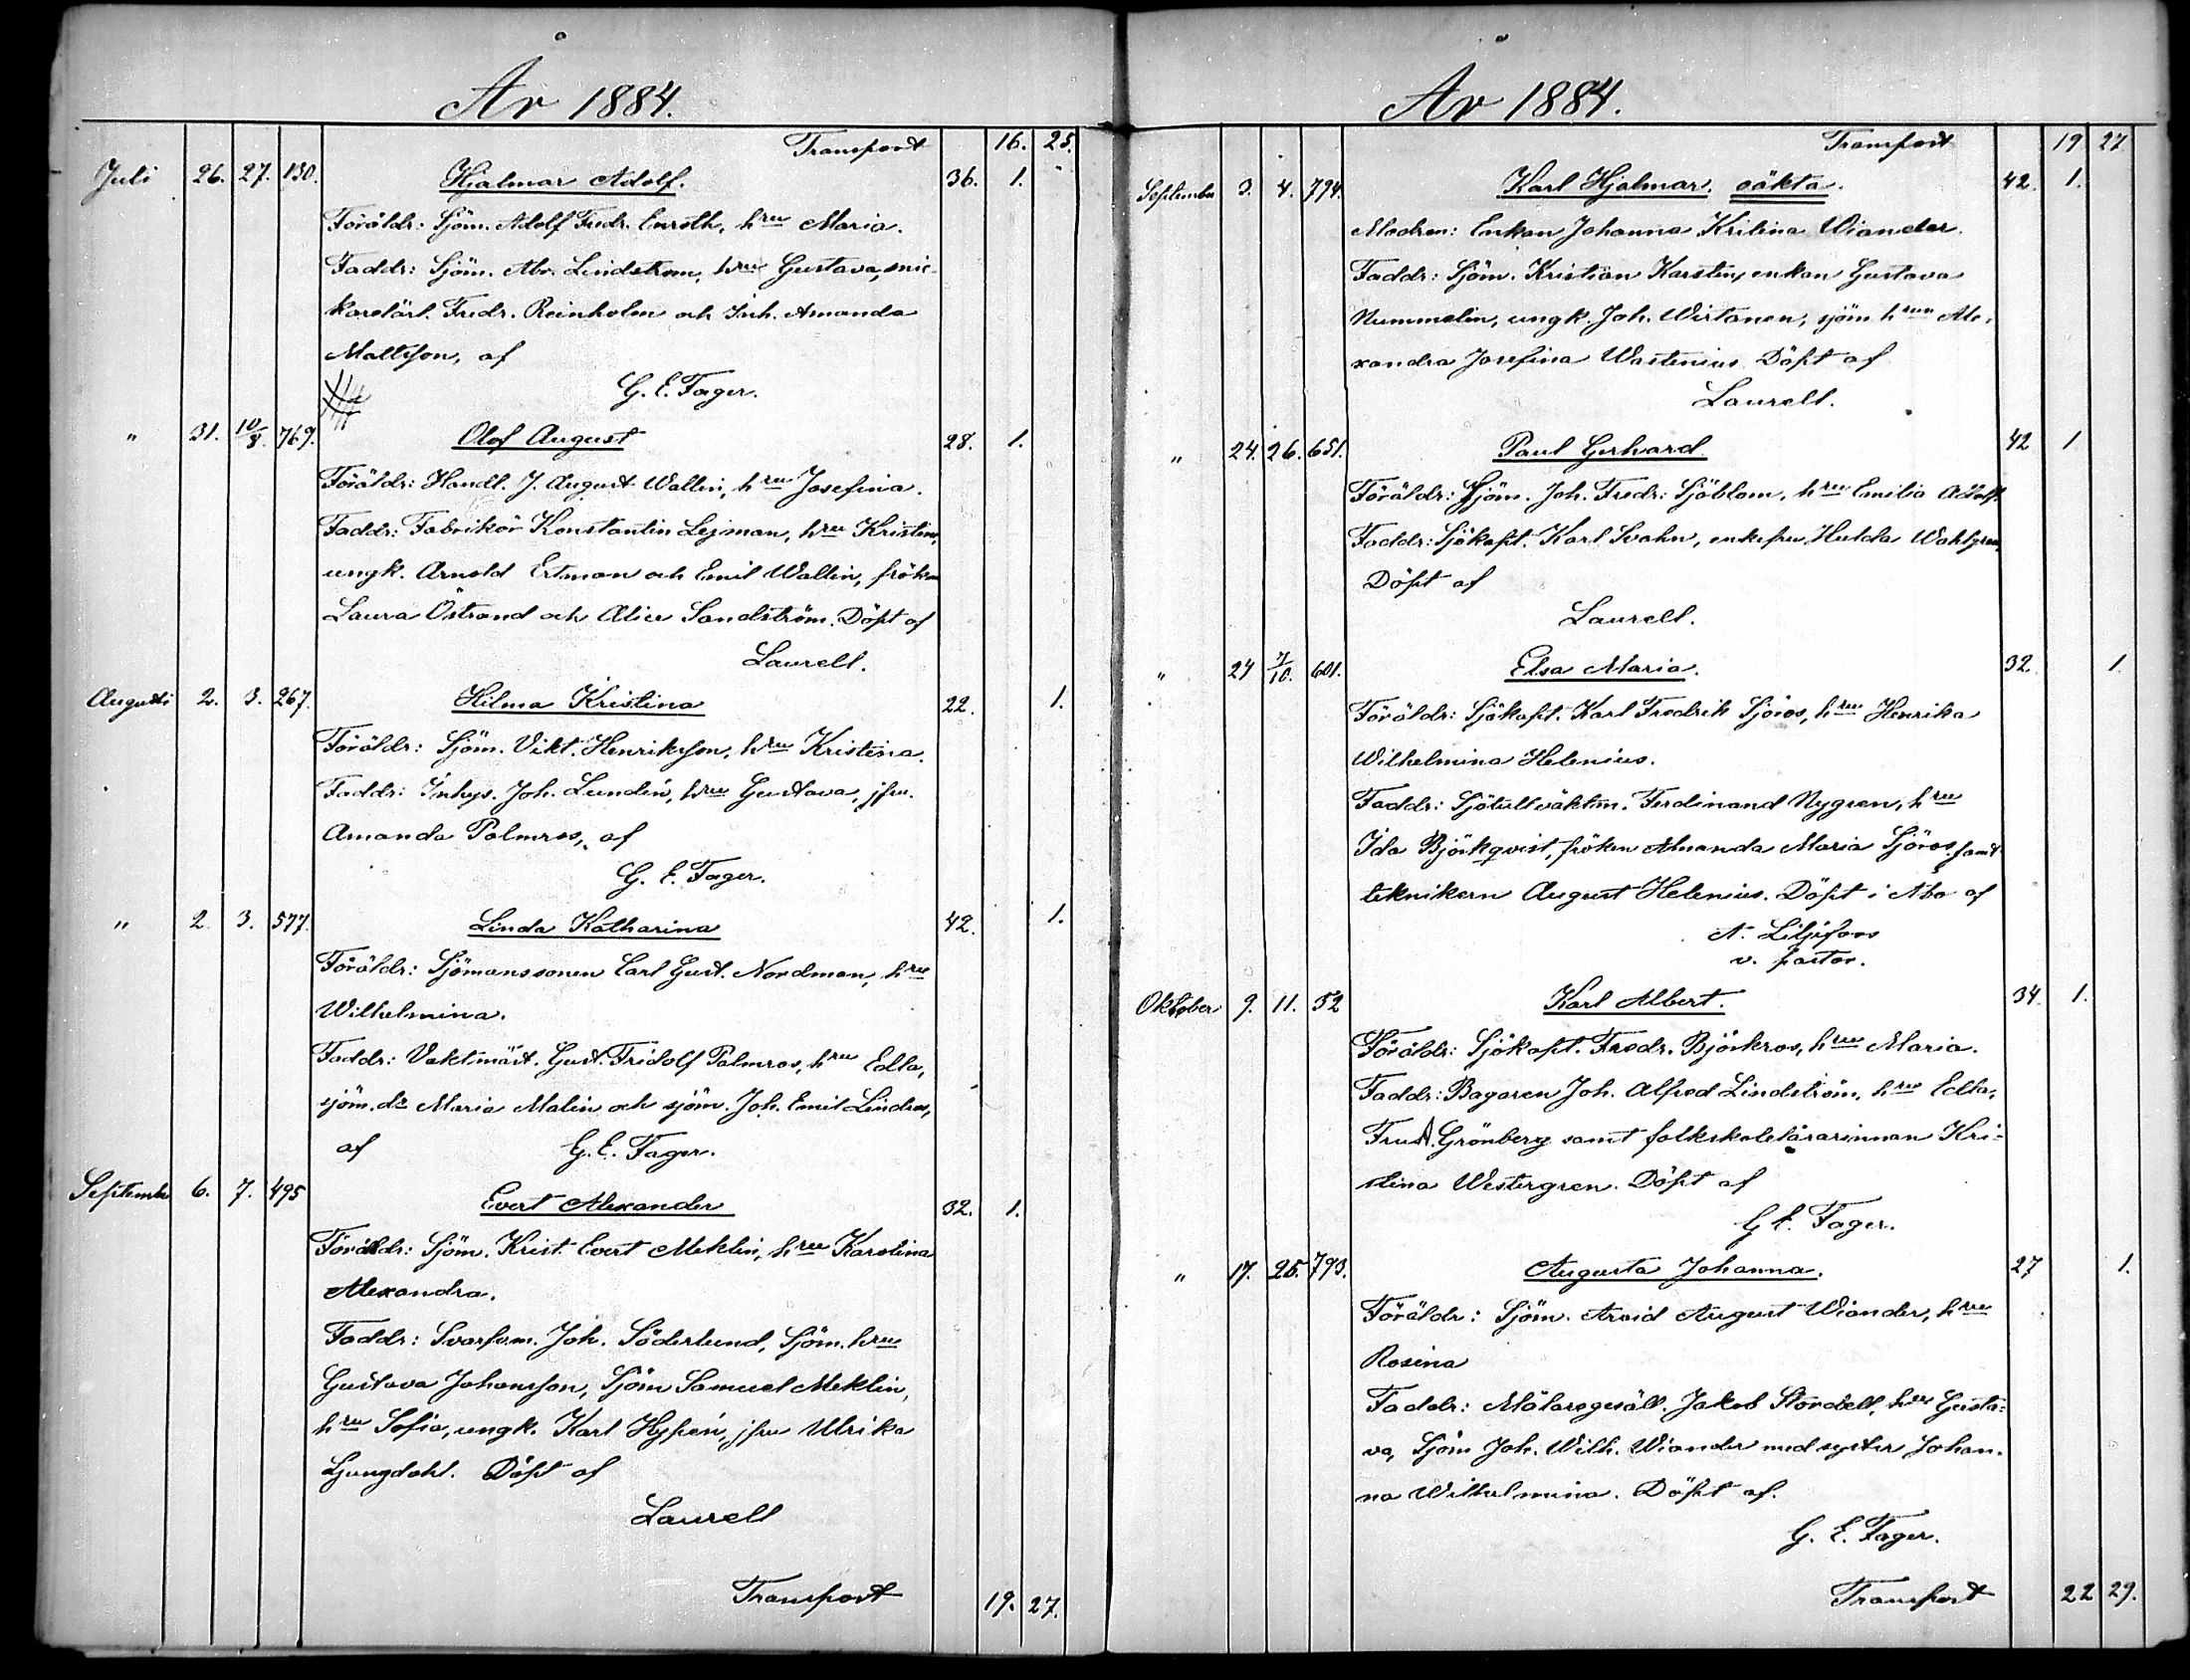 År 1884.
Transport 16. 25.
Juli 26. 27. 130. Hjalmar Adolf. 36. 1.
Föräldr: Sjöm. Adolf Fredr. Enroth, hru Maria.
Faddr: Sjöm. Abr. Lindström, hru Gustava, snic-
karelärl. Fredr. Reinholm och Inh. Amanda
Mattsson, af
G. E. Fager.
" 31. 10/8. 769. Olof August 28. 1.
Föräldr: Handl. J. August Wallin, hru Josefina.
Faddr: Fabrikör Konstantin Lejman, hru Kristina,
ungk. Arnold Ertman och Emil Wallin, frökn
Laura Östrand och Alice Sandström. Döpt af
Laurell.
Augusti 2. 3. 267. Hilma Kristina 22. 1.
Föräldr: Sjöm. Vikt. Henriksson, hru Kristina.
Faddr: Inhys. Joh. Lundén, hru Gustava, jfru.
Amanda Palmros, af
G. E. Fager.
" 2. 3. 577. Linda Katharina 42. 1.
Föräldr: Sjömanssonen Carl Gust. Nordman, hru
Wilhelmina.
Faddr: Vaktmäst. Gust. Fridolf Palmros, hru Edla,
sjöm. dr Maria Malin och sjöm. Joh. Emil Lindros,
af G. E. Fager.
September 6. 7. 495 Evert Alexander 32. 1.
Föräldr: Sjöm. Krist. Evert Meklin, hru Karolina
Alexandra.
Faddr: Svarfvm. Joh. Söderlund, Sjöm. hru
Gustava Johansson, Sjöm Samuel Meklin,
hru Sofia, ungk. Karl Hypén, jfru Ulrika
Ljungdahl. Döpt af
Laurell
Transport 19. 27.
År 1884.
Transport 19 27
September 3. 4. 794. Karl Hjalmar. oäkta. 42. 1.
Modren: Enkan Johanna Kristina Wiander.
Faddr: Sjöm. Kristian Karstin, enkan Gustava
Nummelin, ungk. Joh. Wirtanen, sjöm hrun Ale-
xandra Josefina Wastenius. Döpt af
Laurell.
" 24. 26. 651. Paul Gerhard. 42 1
Föräldr: Sjöm. Joh. Fredr: Sjöblom, hru Emilia Adolf.
Faddr: Sjökapt. Karl Svahn, enkefru Hulda Wahlgren,
Döpt af
Laurell.
" 24 7/10. 601. Elsa Maria. 32. 1.
Föräldr: Sjökapt. Karl Fredrik Sjöros, hru Henrika
Wilhelmina Helenius.
Faddr: Sjötullvaktm. Ferdinand Nygren, hru
Ida Björkqvist, fröken Amanda Maria Sjöros, samt
teknikern August Helenius. Döpt i Åbo af
A. Liljefors
v. pastor.
Oktober 9. 11. 52 Karl Albert. 34. 1.
Föräldr: Sjökapt. Fredr. Björkros, hru Maria.
Faddr: Bagaren Joh. Alfred Lindström, hru Edla,
Fru A. Grönberg samt folkskolelärarinnan Kri-
stina Westergren. Döpt af
G E. Fager.
" 17. 25. 793. Augusta Johanna. 27 1.
Föräldr: Sjöm. Arvid August Wiander, hru
Rosina
Faddr: Målaregesäll. Jakob Stordell, hru Gusta-
va, Sjöm Joh. Wilh. Wiander med syster Johan-
na Wilhelmina. Döpt af.
G. E. Fager.
Transport 22 29.